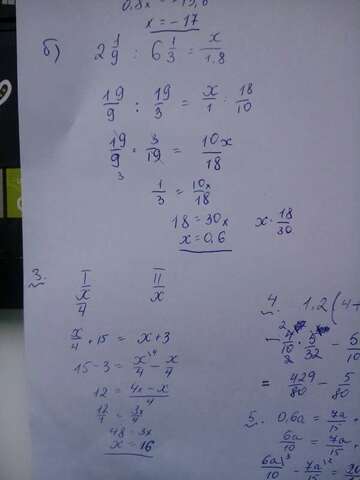 x = -17
б) 2 1/9 : 6 1/3 = x/1.8
19/9 : 19/3 = x/1 : 18/10
19/9 · 3/19 = 10x/18
3
1/3 = 10x/18
18 = 30x
x · 18/30
x = 0,6
3. I II
x/4 x
x/4 + 15 = x + 3
15 - 3 = x/4 - x/4
12 = 4x - x/4
12/1 = 3x/4
48 = 3x
x = 16
4. 1,2 (4
= 429/80 - 5/80
5. 0,6a = 7a/15
6a/10 = 7a/15
6a/10 - 7a/15 =